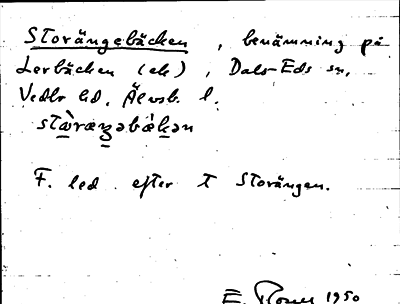 Storängebäcken, benämning på
Lerbäcken (ek), Dals-Eds sn,
Vedbo hd, Älvsb. l.
F. led efter T Storängen.
E. 1950